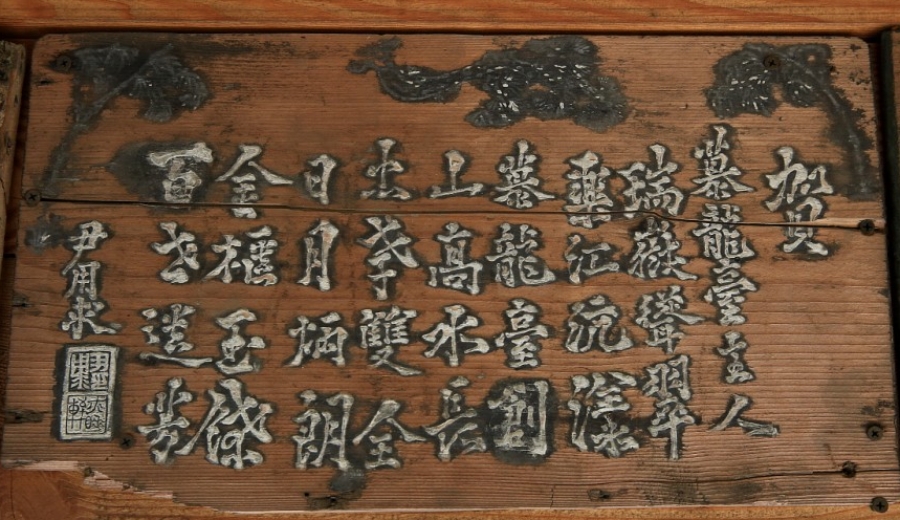 賀
慕龍臺主人
瑞嶽聳翠
燕江流深
慕龍臺創
山高水長
忠孝雙全
日月炳朗
金 玉
百世遺芳
尹用求